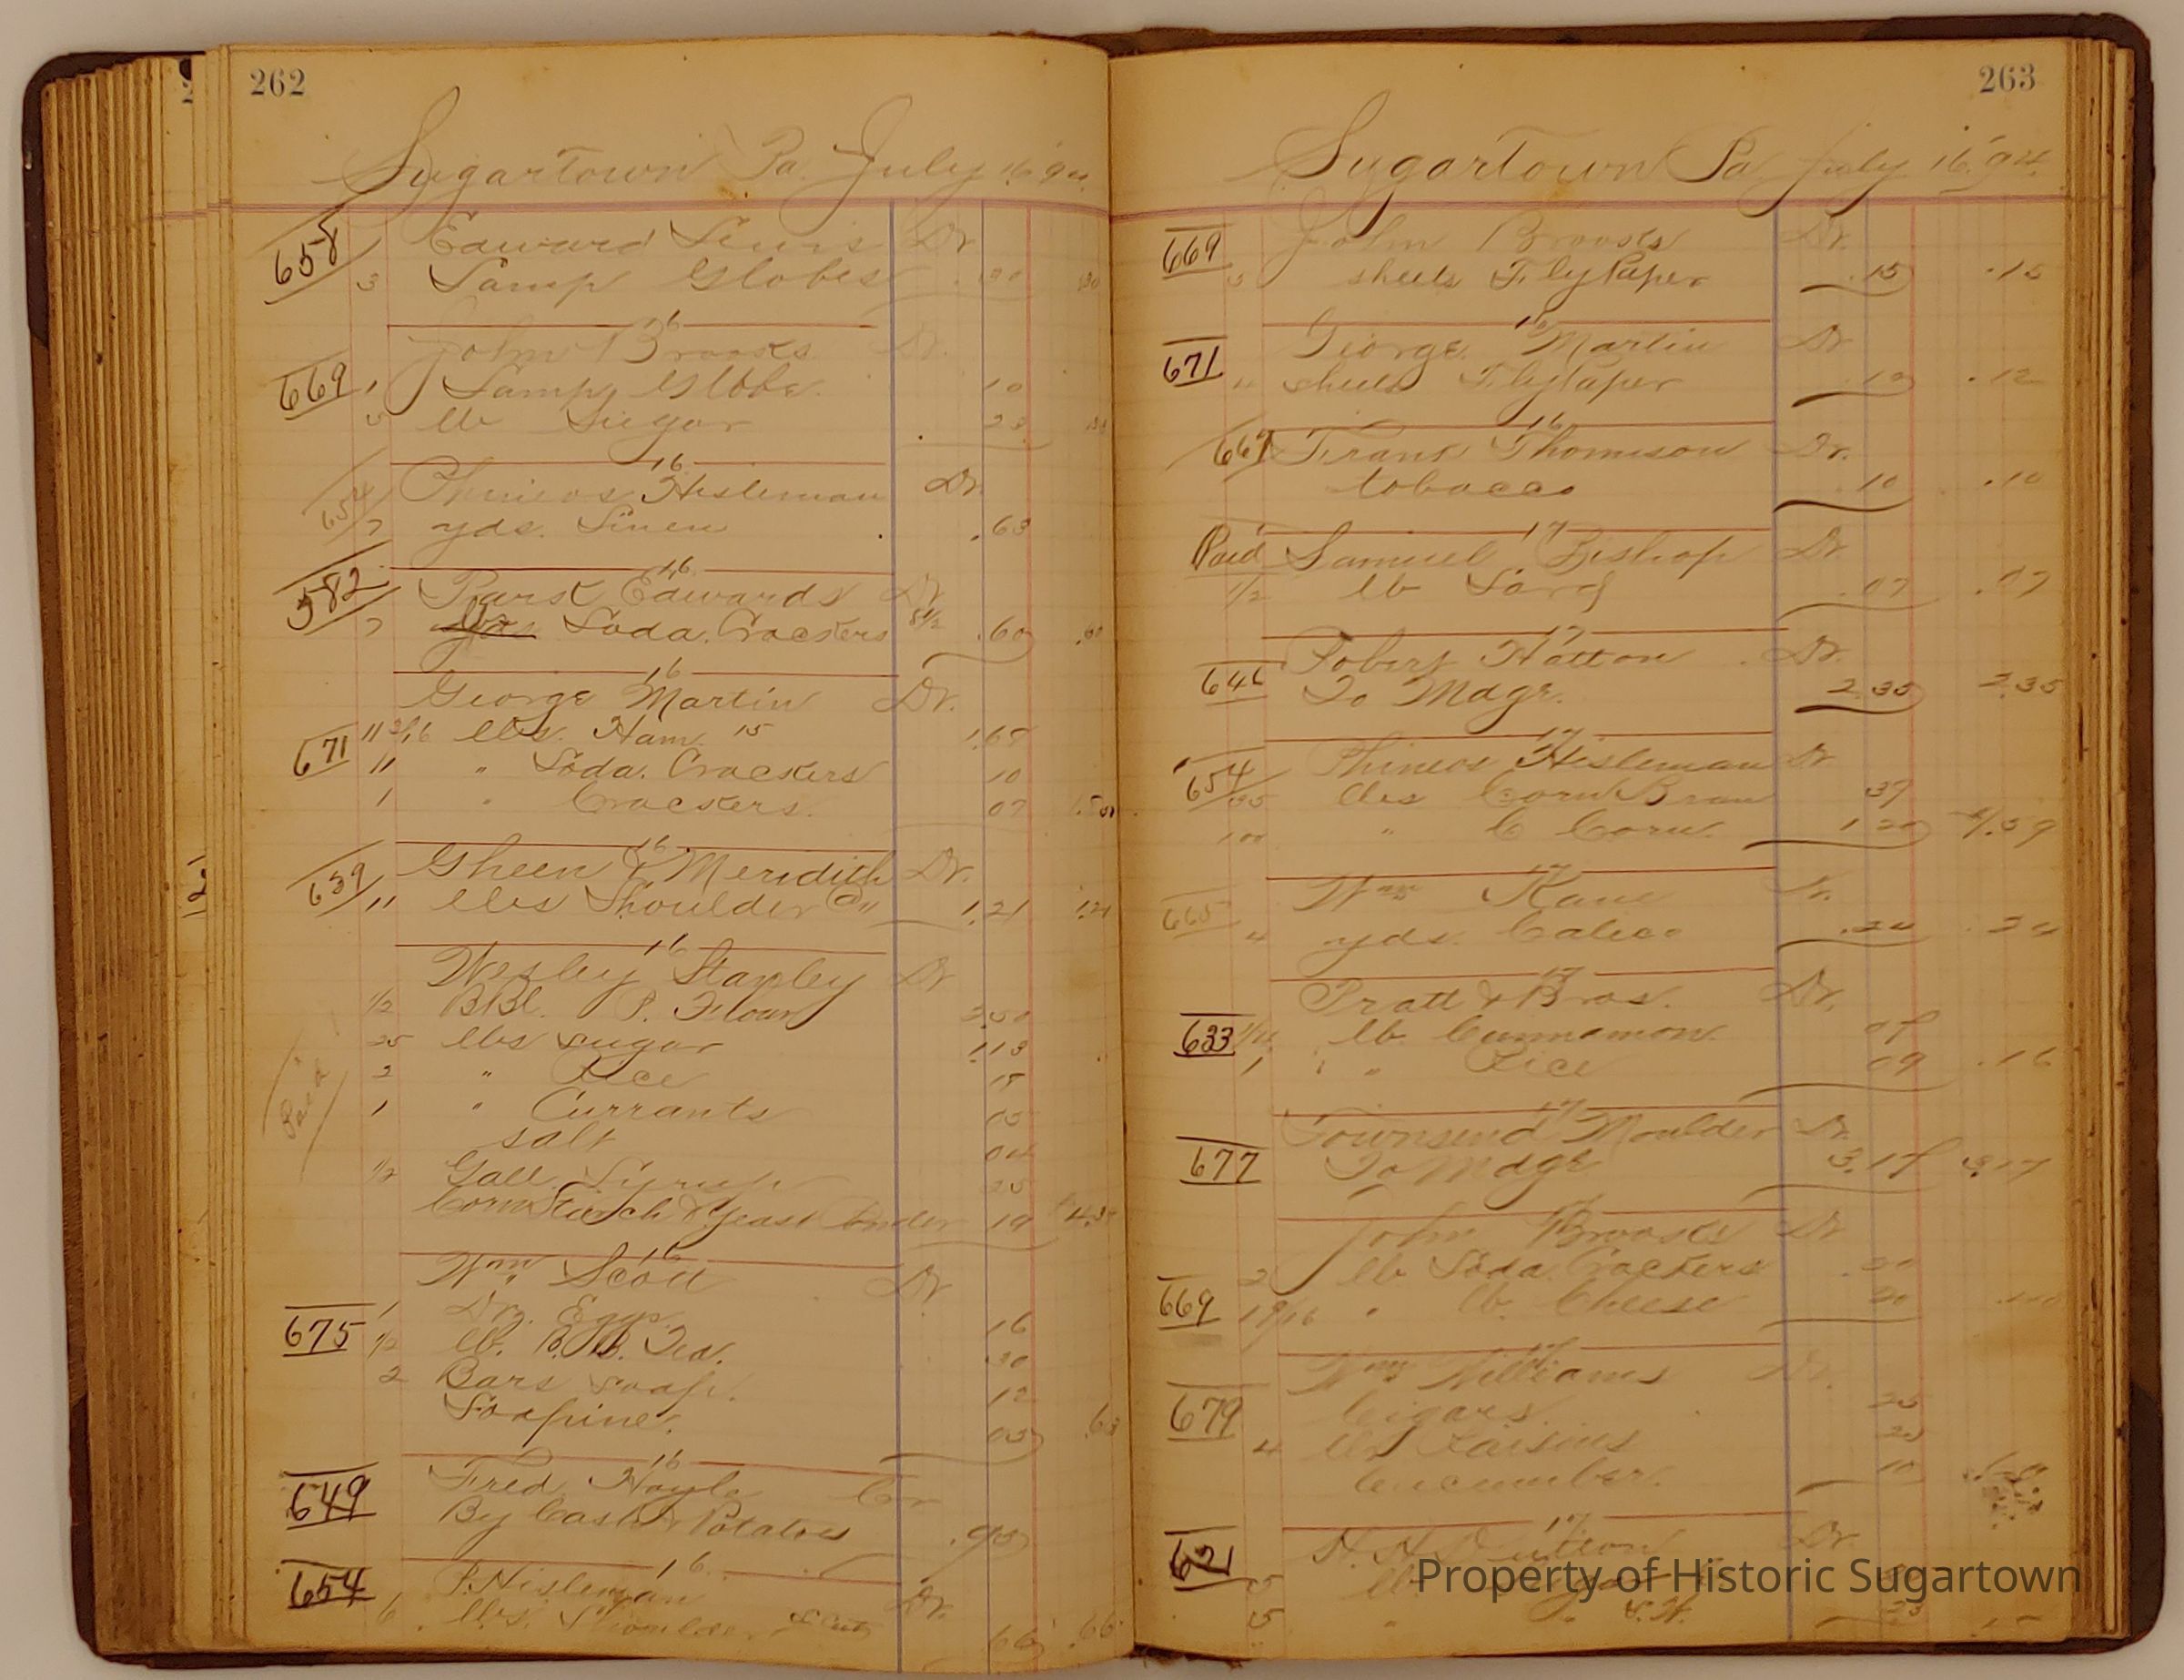 262
Sugartown Pa. July 16 94.
658 Edward Lewis Dr.
3 Lamp Globes .30 .30
16
John Brooks Dr.
669 1 Lamp Globe. 10
5 lb Sugar 23
16
654 Phineas Hisleman Dr.
7 yds. Linen .63
16
582 Park Edwards Dr
7 lbs Soda. Crackers 8½ .60 .60
16
George Martin Dr.
671 11 3/16 lbs. Ham. 15 1.68
11 " Soda. Crackers 10
1 " Crackers. 07
16
639 Gheen & Meridith Dr.
11 lbs Shoulder @ 11 1.21 1.21
16
Wesley Stanley Dr
Paid
1/2 BBl. P. Flour
25 lbs sugar 1.13
2 " Rice 15
1 " Currants 05
salt 04
1/2 Gall. Syrup 25
Corn Starch & Yeast 19
16
Wm. Scott Dr
675 1 Dz. Eggs. 16
1/2 lb. B.B. Tea. 30
2 Bars soap. 12
Soapine. 05 .63
16
649 Fred Hoyle Cr
By Cash & Potatoes .95
16
654 P. Hisleman Dr.
6 lbs. Shoulder 66 .66
263
Sugartown Pa July 16. 94.
669 John Brooks Dr.
5 sheets Fly Paper .15 .15
16
671 George Martin Dr
4 sheets Fly Paper .12 .12
16
667 Frank Thomison Dr.
tobacco .10 .10
17
Paid Samuel Bishop Dr.
1/2 lb Lard .07 .07
17
646 Robert Hatton Dr.
To Mdge. 2.35 2.35
17
654 Phineas Hisleman Dr
35 lbs Corn Bran 39
100 " C Corn. 1.20 1.59
17
665 Wm Kane Dr.
4 yds. Calico .24 .24
17
Pratt & Bros. Dr.
633 1/4 lb Cunnamon. 07
1 " Rice 09 .16
17
Townsend Moulder Dr.
677 To Mdge 3.17 3.17
17
John Brooks Dr
2 lb Soda Crackers .20
669 1 9/16 " lb. Cheese 20
17
Wm. Williams Dr.
679 Cigars. 25
4 lbs Raisins
Cucumber. 10
17
621 Dr.
5 lb.
5 " 23
Property of Historic Sugartown